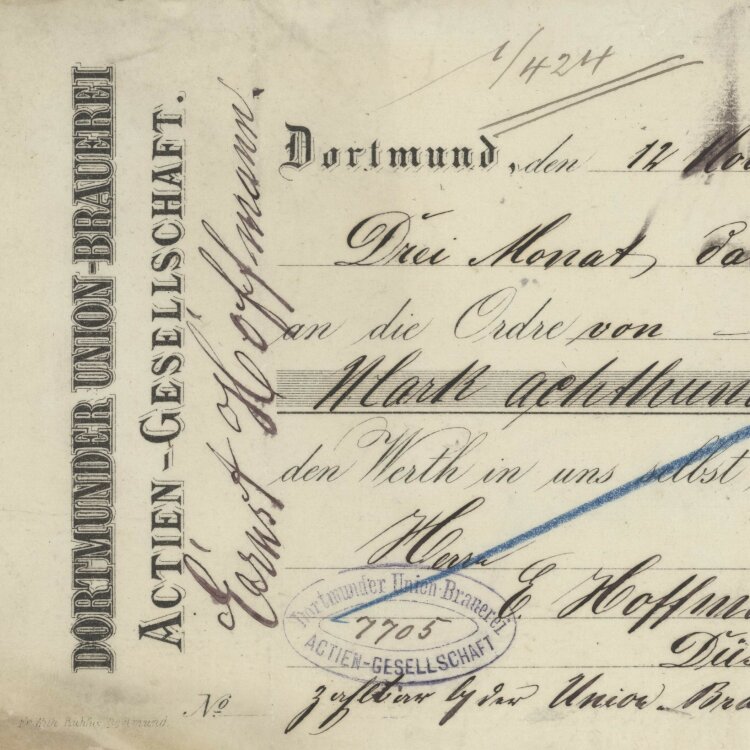 DORTMUNDER UNION-BRAUEREI
ACTIEN-GESELLSCHAFT.
Ernst Hoffmann.
1/424
Dortmund, den 12 Nov
Drei Monat da
an die Ordre von
Mark achthun
den Werth in uns selbst
Herrn
E Hoffm
Düs
Dortmunder Union-Brauerei
7705
ACTIEN-GESELLSCHAFT
No
zahlbar by der Union-Bra
Dortmund.